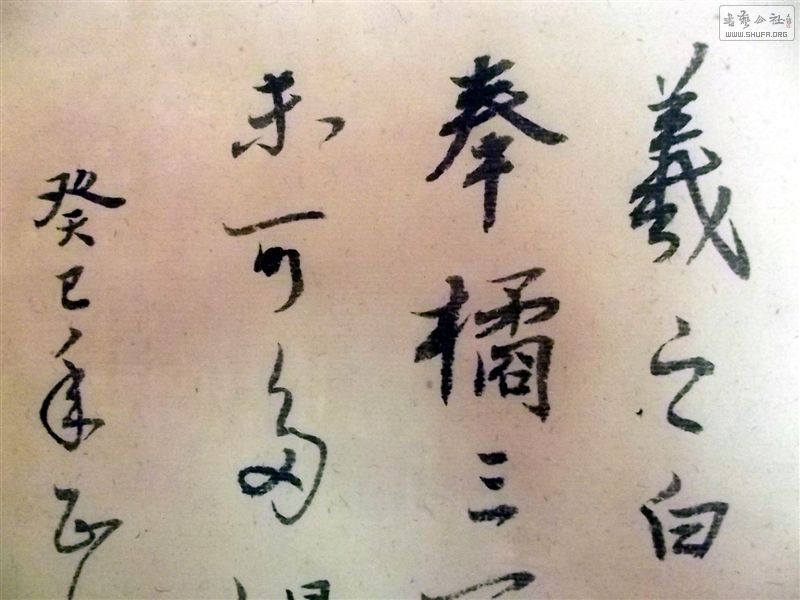 羲之白
奉橘三百
未可多得
癸巳年正
书艺公社
WWW.SHUFA.ORG